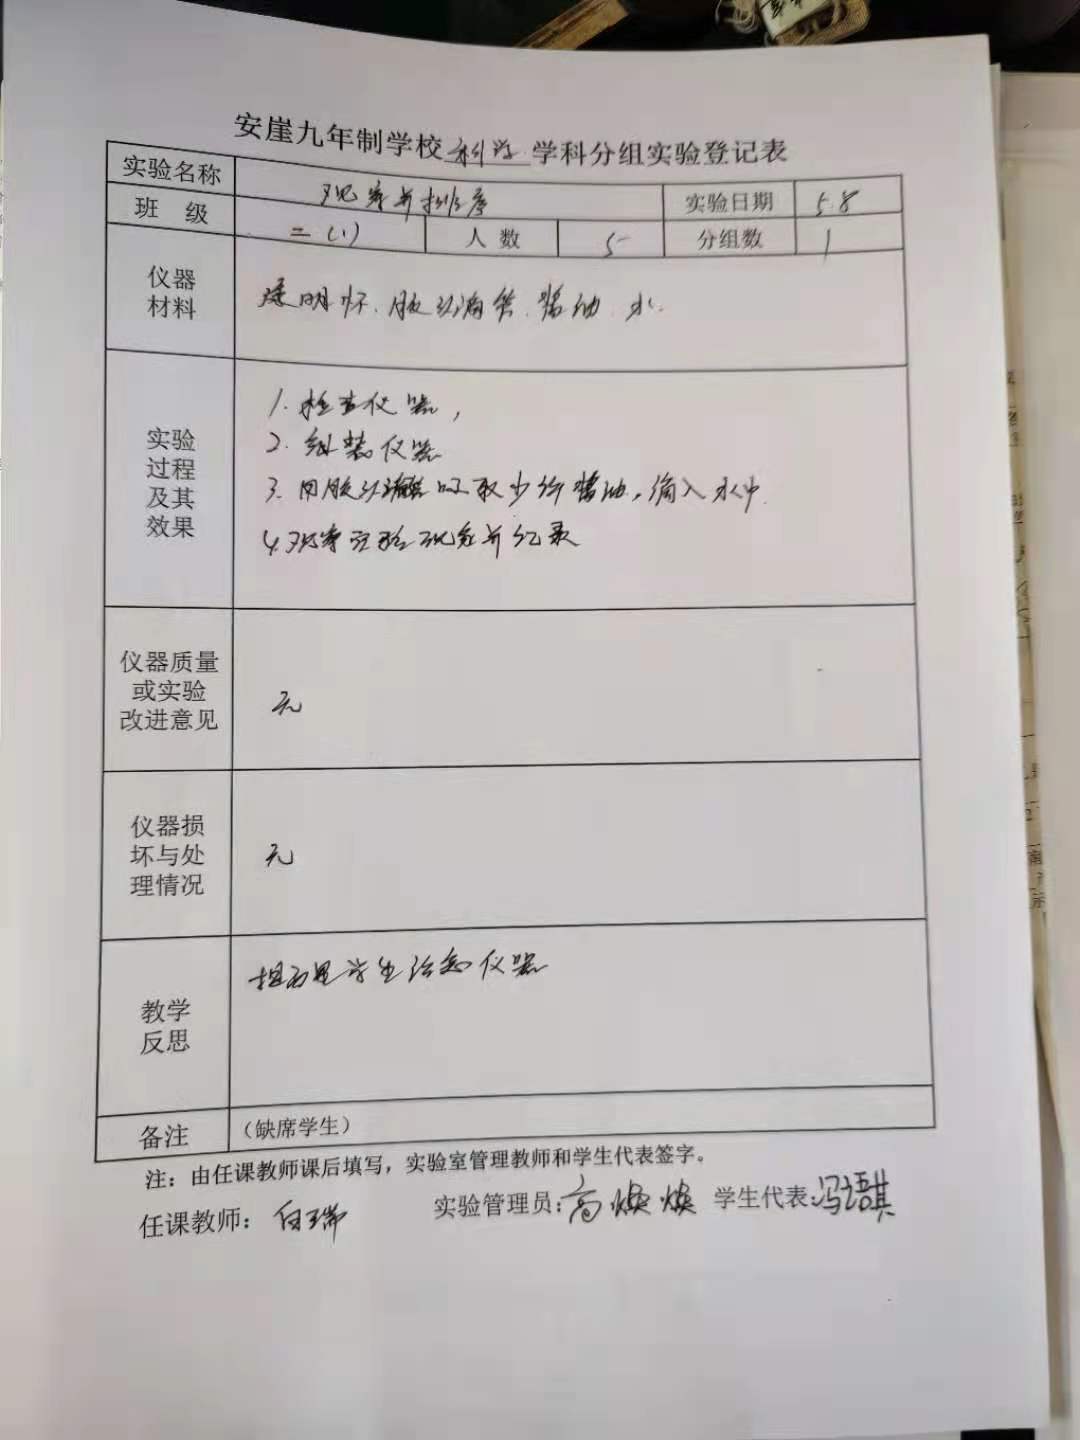 安崖九年制学校 科学 学科分组实验登记表
实验名称 观察并排序 实验日期 5.8
班 级 二(1) 人 数 5 分组数 1
仪器
材料
透明杯、胶头滴管、酱油、水.
实验
过程
及其
效果
1. 检查仪器,
2. 组装仪器
3. 用胶头滴管吸取少许酱油,滴入水中.
4. 观察实验现象并记录
仪器质量
或实验
改进意见
无
仪器损
坏与处
理情况
无
教学
反思
学生 仪器
备注 (缺席学生)
注:由任课教师课后填写,实验室管理教师和学生代表签字。
任课教师: 白瑞 实验管理员:高焕焕 学生代表:冯语淇